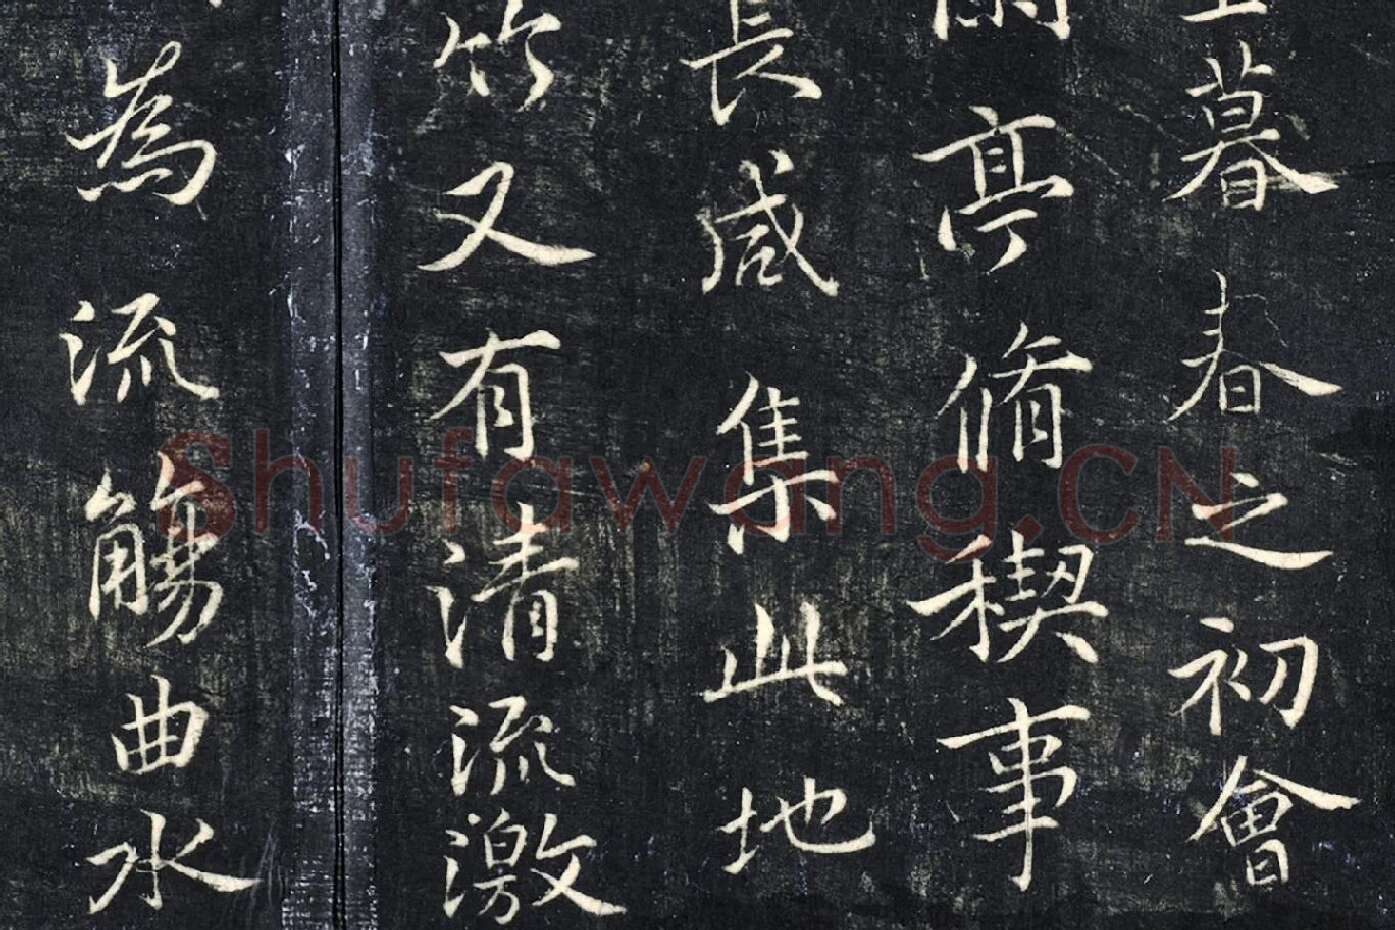 暮春之初會
亭脩稧事
長咸集此地
竹又有清流激
為流觴曲水
Shufawang.CN